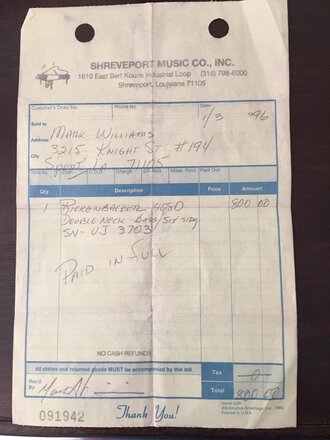 SHREVEPORT MUSIC CO., INC.
1610 East Bert Kouns Industrial Loop (318) 798-6000
Shreveport, Louisiana 71105
Customer's Order No. Phone No. Date 1/3 1996
Sold to MARK WILLIAMS
Address 3215 KNIGHT ST #194
City SPORT LA 71105
Sold By Cash C.O.D. Charge On Acct. Mdse. Retd. Paid Out
Qty. Description Price Amount
1 RICKENBACKER 4080 800 00
DOUBLE NECK BASS/SIX STRG.
SN- UJ 3703
PAID IN FULL
NO CASH REFUNDS
All claims and returned goods MUST be accompanied by this bill.
Tax 0
Rec'd By
Total 800 00
091942 Thank You!
Printed in U.S.A.